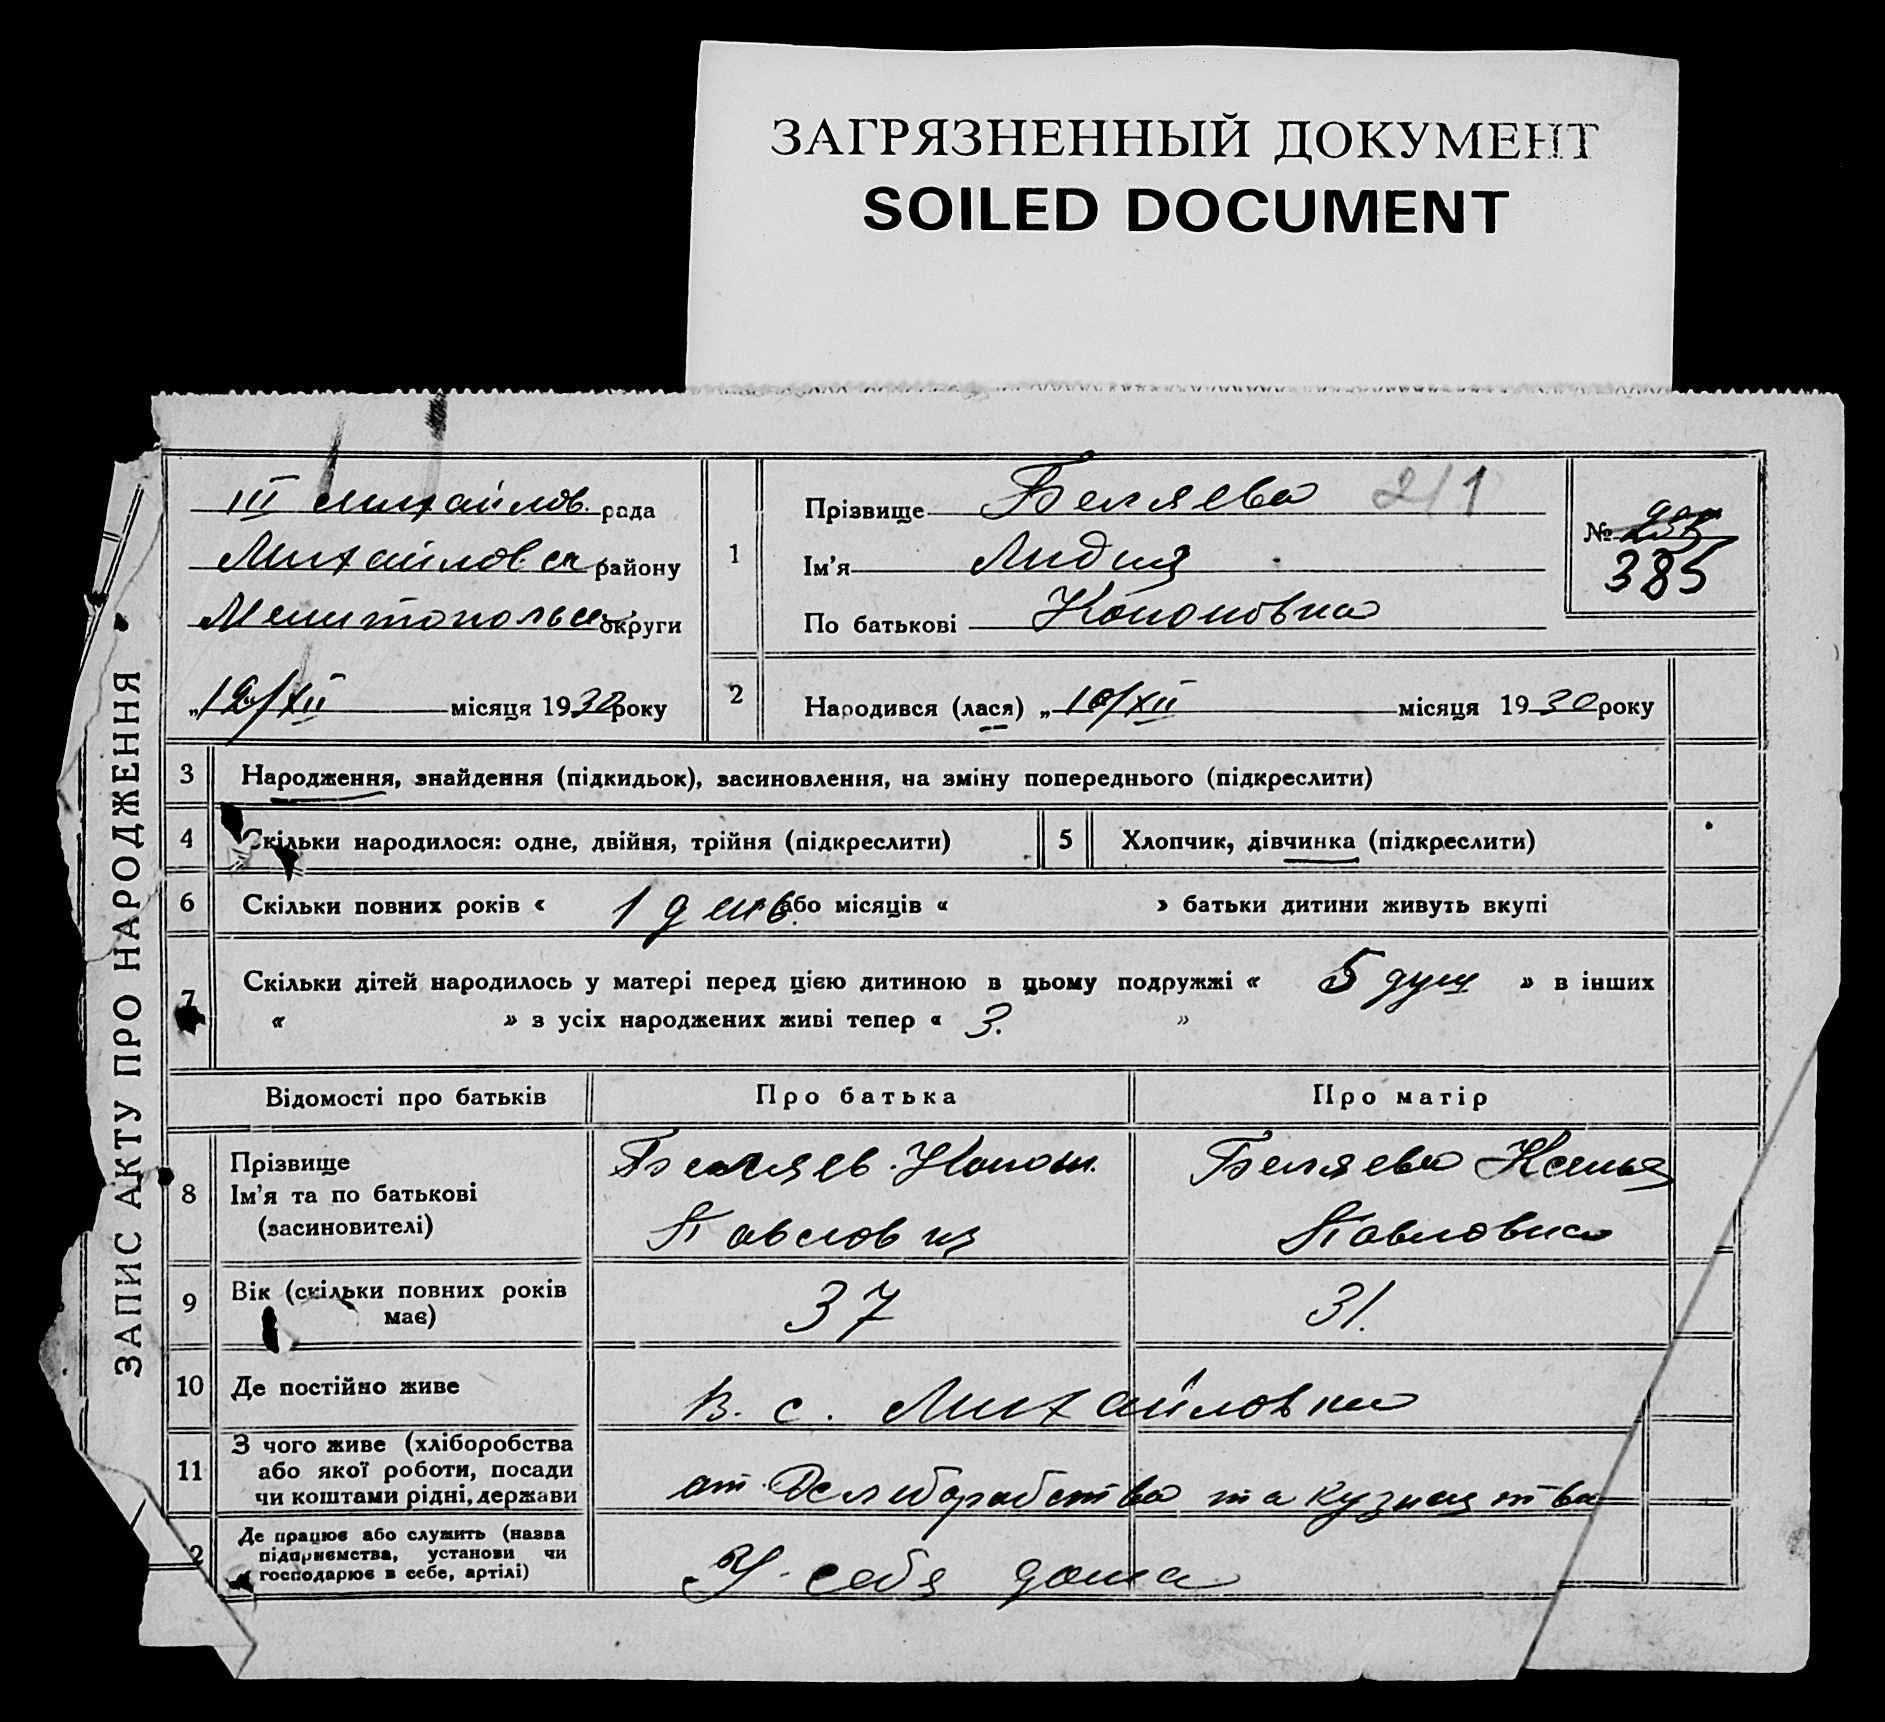 ЗАГРЯЗНЕННЫЙ ДОКУМЕНТ
SOILED DOCUMENT
ЗАПИС АКТУ ПРО НАРОДЖЕННЯ
III Михайлов. рада
Михайловск району
округи
„12/XII місяця 1930 року
1
Прізвище Беляева 2/1
Ім’я Лидия
По батькові Кононовна
№ 385
2
Народився (лася) „10/XII місяця 1930 року
3 Народження, знайдення (підкидьок), засиновлення, на зміну попереднього (підкреслити)
4 Скільки народилося: одне, двійня, трійня (підкреслити) 5 Хлопчик, дівчинка (підкреслити)
6 Скільки повних років « 1 або місяців « » батьки дитини живуть вкупі
7 Скільки дітей народилось у матері перед цією дитиною в цьому подружжі « 5 душ » в інших
« » з усіх народжених живі тепер « 3. »
Відомості про батьків Про батька Про матір
8 Прізвище
Ім’я та по батькові
(засиновителі)
Беляев Конон.
Павлов
Беляева Ксенья
Павловна
9 Вік (скільки повних років
має)
37 31.
10 Де постійно живе В. с. Михайловки
11 З чого живе (хліборобства
або якої роботи, посади
чи коштами рідні, держави
от та
Де працює або служить (назва
підприємства, установи чи
господарює в себе, артілі)
У себя дома